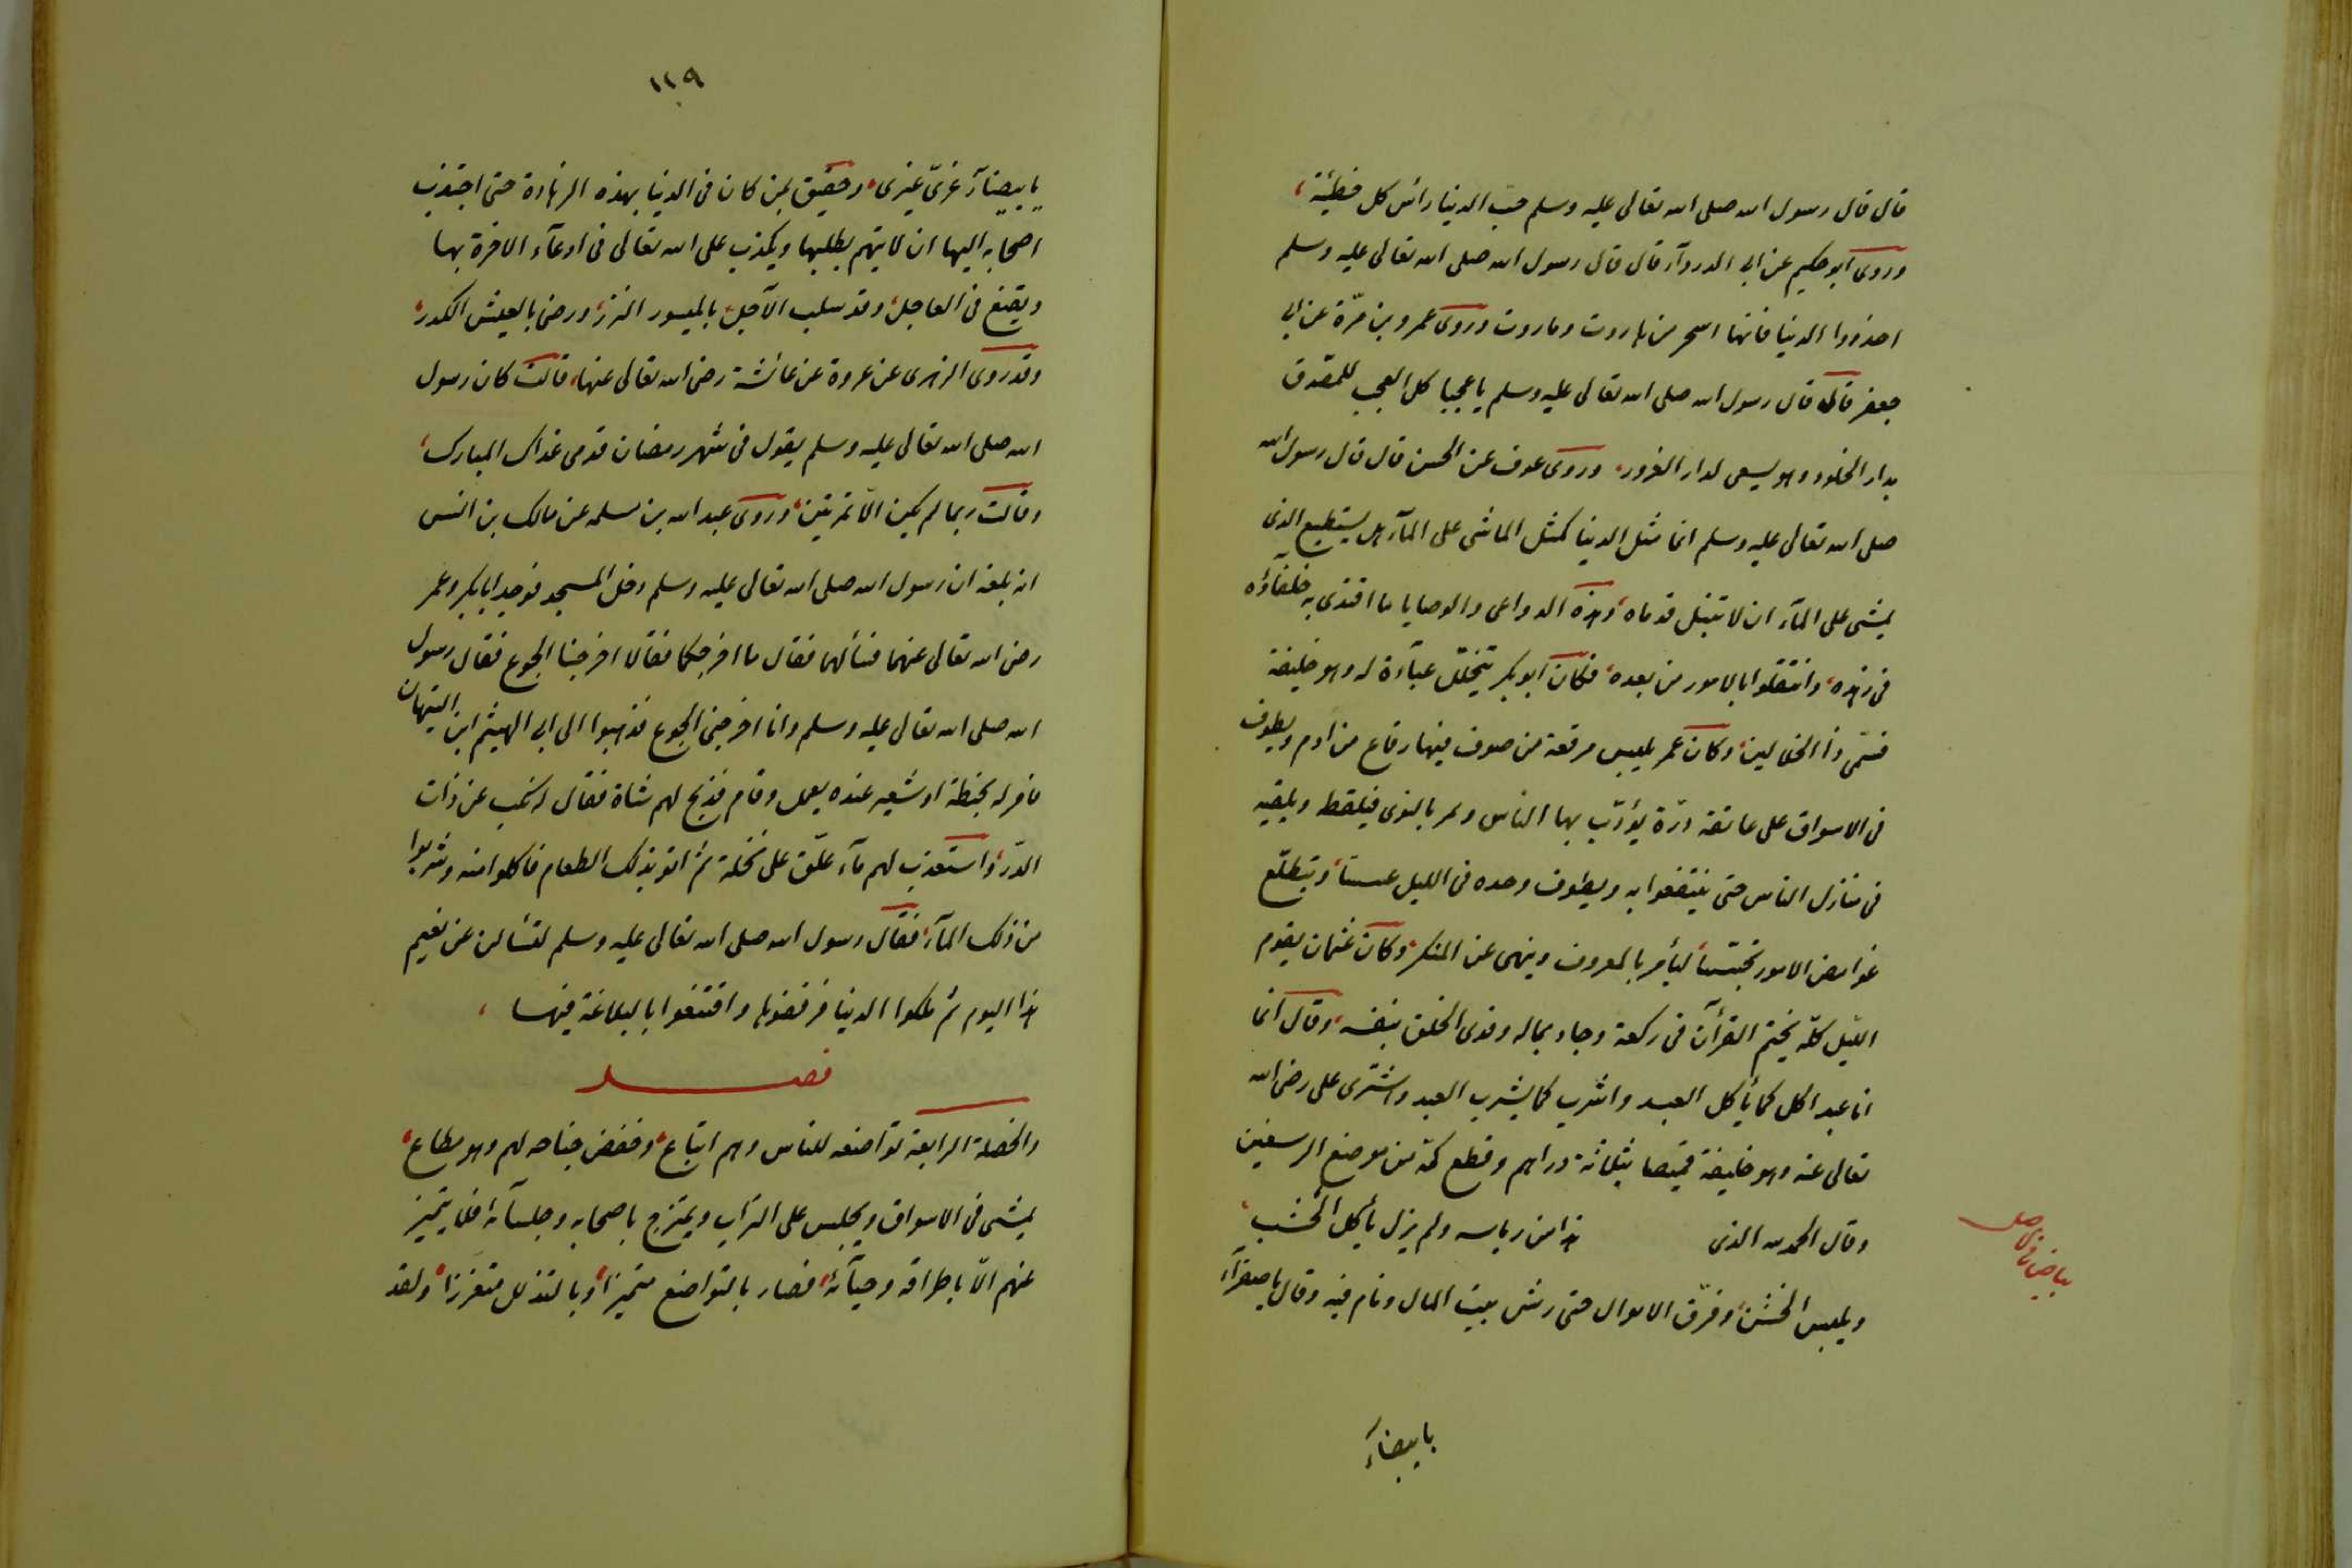 قال قال رسول الله صلى الله تعالى عليه وسلم حب الدنيا رأس كل خطيئة،
وروى ابو حكيم عن ابى الدردآء قال قال رسول الله صلى الله تعالى عليه وسلم
احذروا الدنيا فانها اسحر من هاروت وماروت وروى عمرو بن مرّة عن ابى
جعفر قال قال رسول الله صلى الله تعالى عليه وسلم يا عجبا كل العجب للمصّدق
بدار الخلود وهو يسعى لدار الغرور، وروى عوف عن الحسن قال قال رسول الله
صلى الله تعالى عليه وسلم انما مثل الدنيا كمثل الماشى على المآء هل يستطيع الذى
يمشى على المآء ان لا تبتل قدماه، وهذه الدواعى والوصايا ما اقتدى به خلفاؤه
فى زهده، وانتقلوا بالامور من بعده، فكان ابو بكر يتخلل عبآءة له وهو خليفة
فسمّى ذا الخلالين، وكان عمر يلبس مرقعة من صوف فيها رقاع من ادم ويطوف
فى الاسواق على عاتقه درّة يؤدّب بها الناس ويمر بالنوى فيلقط ويلقيه
فى منازل الناس حتى ينتفعوا به ويطوف وحده فى الليل عسسا، ويتطلّع
غوامض الامور تجسّسا ليأمر بالمعروف وينهى عن المنكر، وكان عثمان يقوم
الليل كلّه يختم القرآن فى ركعة وجاد بماله وفدى الخلق بنفسه، وقال انما
انا عبد اكل كما يأكل العبد واشرب كما يشرب العبد واشترى على رضى الله
تعالى عنه وهو خليفة قميصا بثلاثة دراهم وقطع كمّه من موضع الرسغين
وقال الحمد لله الذى هذا من رياسه ولم يزل يأكل الخشب،
ويلبس الخشن، وفرّق الاموال حتى رش بيت المال ونام فيه وقال يا صفرآء
بياض فى الاصل
يا بيضآء
١١٩
يا بيضآء غرّى غيرى، وحقيق لمن كان فى الدنيا بهذه الزهادة حتى اجتذب
اصحابه اليها ان لا يتهم بطلبها ويكذب على الله تعالى فى ادعآء الاخرة بها
ويقنع فى العاجل، وقد سلب الآجل، بالميسور النزر، ورضى بالعيش الكدر،
وقد روى الزهرى عن عروة عن عائشة رضى الله تعالى عنها، قالت كان رسول
الله صلى الله تعالى عليه وسلم يقول فى شهر رمضان قدمى غداك المبارك،
وقالت ربما لم يكن الّا تمرتين، وروى عبد الله بن مسلمه عن مالك بن انس
انه بلغه ان رسول الله صلى الله تعالى عليه وسلم دخل المسجد فوجد ابا بكر وعمر
رضى الله تعالى عنهما فسألهما فقال ما اخرجكما فقالا اخرجنا الجوع فقال رسول
الله صلى الله تعالى عليه وسلم وانا اخرجنى الجوع فذهبوا الى ابى الهيثم ابن التيهان
فامر له بحنطة او شعير عنده يعمل وقام فذبح لهم شاة فقال له نكب عن ذات
الدرّ، واستعذب لهم مآء علّق على نخلة ثم اتو بذلك الطعام فاكلوا منه وشربوا
من ذلك المآء، فقال رسول الله صلى الله تعالى عليه وسلم لتسألن عن نعيم
هذا اليوم ثم ملكوا الدنيا فرفضوها واقتنعوا بالبلاغة فيها،
فصل
والخصلة الرابعة تواضعه للناس وهم اتباع، وخفض جناحه لهم وهو مطاع،
يمشى فى الاسواق ويجلس على التراب ويمتزج باصحابه وجلسآئه فلا يتميز
عنهم الّا باطراقه وحيآئه، فصار بالتواضع متميزا، وبالتذلل متعززا، ولقد